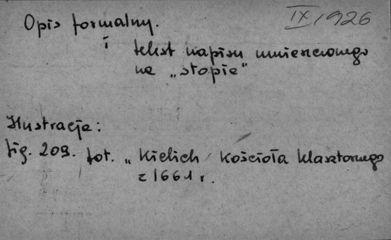 Opis formalny.
IX/1926
i
tekst napisu umieszczonego
na „stopie"
Ilustracja:
fig. 209. fot. „Kielich kościoła klasztornego
z 1661 r.